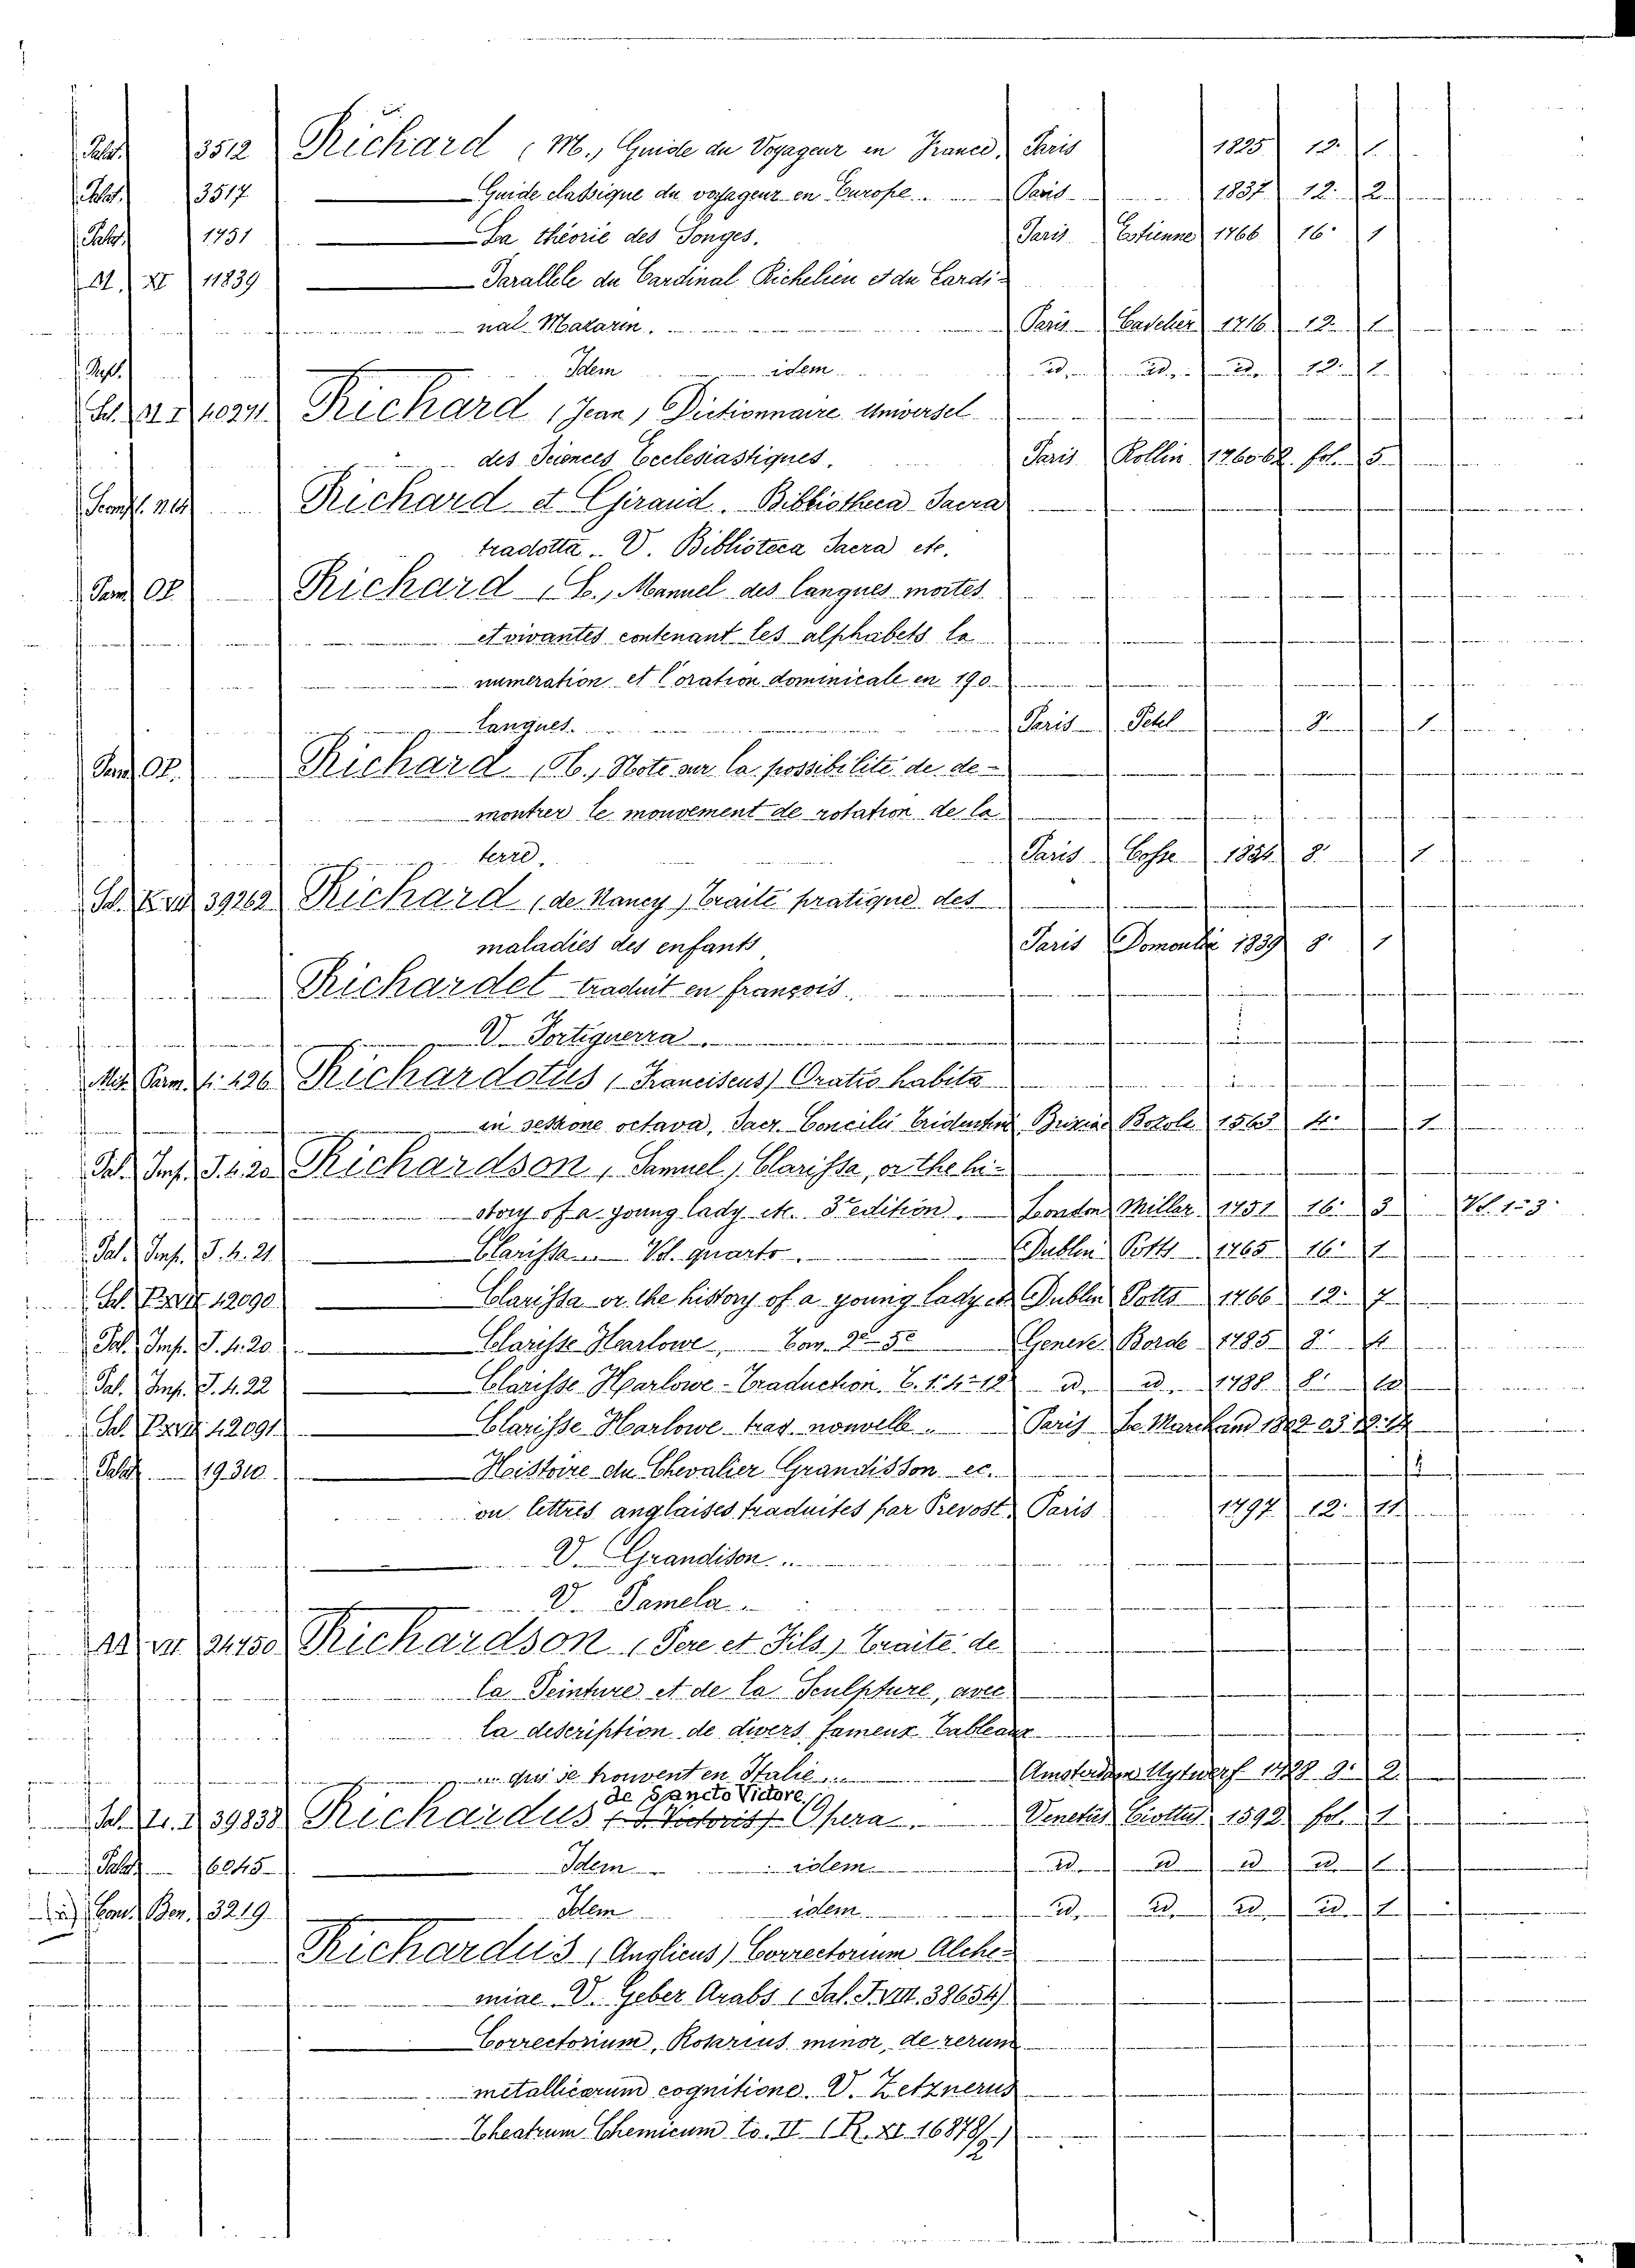 Palat. 3512 Richard (M., Guide du Voyageur en France. Paris 1825 12. 1
Palat. 3517 Guide classique du voyageur en Europe. Paris 1837 12. 2
Palat. 1751 La théorie des Songes. Paris Estienne 1766 16. 1
At. XI 11839 Parallele du Cardinal Richelieu et du Cardi-
nal Mazarin. Paris 1716 12. 1
Idem idem id. id. id. 12. 1
10271 Richard (Jean) Dictionnaire Universel
des Sciences Ecclesiastiques. Paris Rollin 1760 62. fol. 5
Richard et Giraud. Bibliotheca Sacra
tradotta. V. Biblioteca Sacra etc.
Op. Richard (C., Manuel des langues mortes
et vivantes contenant les alphabets la
numeration et l'oration dominicale en 190
langues. Paris 8. 1
Op. Richard, Note sur la possibilité de de-
montrer le mouvement de rotation de la
terre. Paris Cosse 8. 1
39262 Richard (de Nancy) Traité pratique des
maladies des enfants Paris 1839 8. 1
Richardet traduit en françois.
V. Fortiguerra.
Richardotus (Franciscus) Oratio habita
in sessione octava, Sacr. Concilii Tridentini 1563 4. 1
Pal. Imp. J. 4. 20 Richardson (Samuel) Clarissa, or the hi-
story of a young lady etc. 3d edition. London Miller 1751 16. 3 Vol. 1-3.
Pal. Imp. J. 4. 21 Clarissa .. Vol. quarto. Dublin Potts 1765 16. 1
42090 Clarissa or the history of a young lady etc. Dublin Potts 1766 12. 7
Pal. Imp. J. 4. 20 Clarisse Harlowe, Geneve Borde 1785 8. 4
Pal. Imp. J. 4. 22 Clarisse Harlowe - Traduction. id. id. 1788 8. 10
42091 Clarisse Harlowe trad. nouvelle. Paris Le Marchand 1802 03 12. 14
Palat. 19310 Histoire du Chevalier Grandisson ec.
ou lettres anglaises traduites par Prevost. Paris 1797 12. 11
V. Grandison.
V. Pamela.
24750 Richardson (Pere et Fils) Traité de
la Peinture et de la Sculpture, avec
la description de divers fameux Tableaux
qui se trouvent en Italie. Amsterdam Uytwerf 1728 8. 2
39838 Richardus (S. Victoris) de Sancto Victore. Opera. Venetiis Ciottus 1592 fol. 1
Palat. 6045 Idem idem id. id. id. id. 1
Ben. 3219 Idem idem id. id. id. id. 1
Richardus (Anglicus) Correctorium Alche-
miae. V. Geber Arabs (Sal. F. VIII. 38654)
Correctorium, Rosarius minor, de rerum
metallicarum cognitione. V. Zetznerus
Theatrum Chemicum to. II (R. XI. 16878/2)